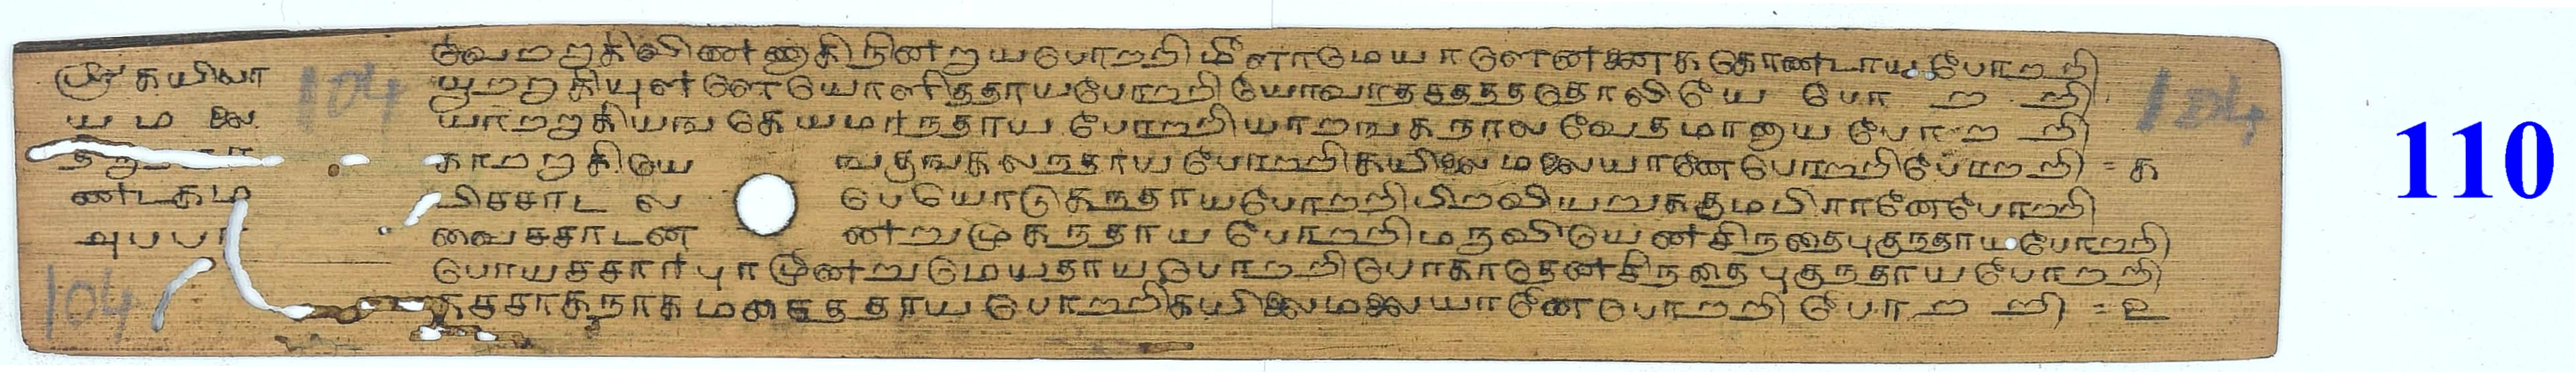 ஸ்ரீகயிலா
யமலை
ணடகம
அபபர
வேறறாகிவிணணாகிநினறாயபோறறிமீளாமேயாளெனனைககொணடாயபோறறி
யூறறாகியுளளேயொளிததாயபோறறியோவாதசததததொலியே போறறி
யாறறாகியஙகேயமரநதாய போறறியாறஙகநாலவேதமானாய போறறி
காறறாகியெ ஙகுஙகலநதாயபோறறிகயிலைமலையானேபோறறிபோறறி = க
பிசசாடல பேயோடுகநதாயபோறறிபிறவியறுககுமபிரானேபோறறி
வைசசாடன னறுமுகநதாயபோறறிமருவியெனசிநதைபுகுநதாயபோறறி
பொயசசாரபுரமூனறுமெயதாயபோறறிபோகாதெனசிநதைபுகுநதாயபோறறி
கசசாகநாகமசைததாயபோறறிகயிலைமலையானேபோறறி போறறி = உ
104
104
104
110